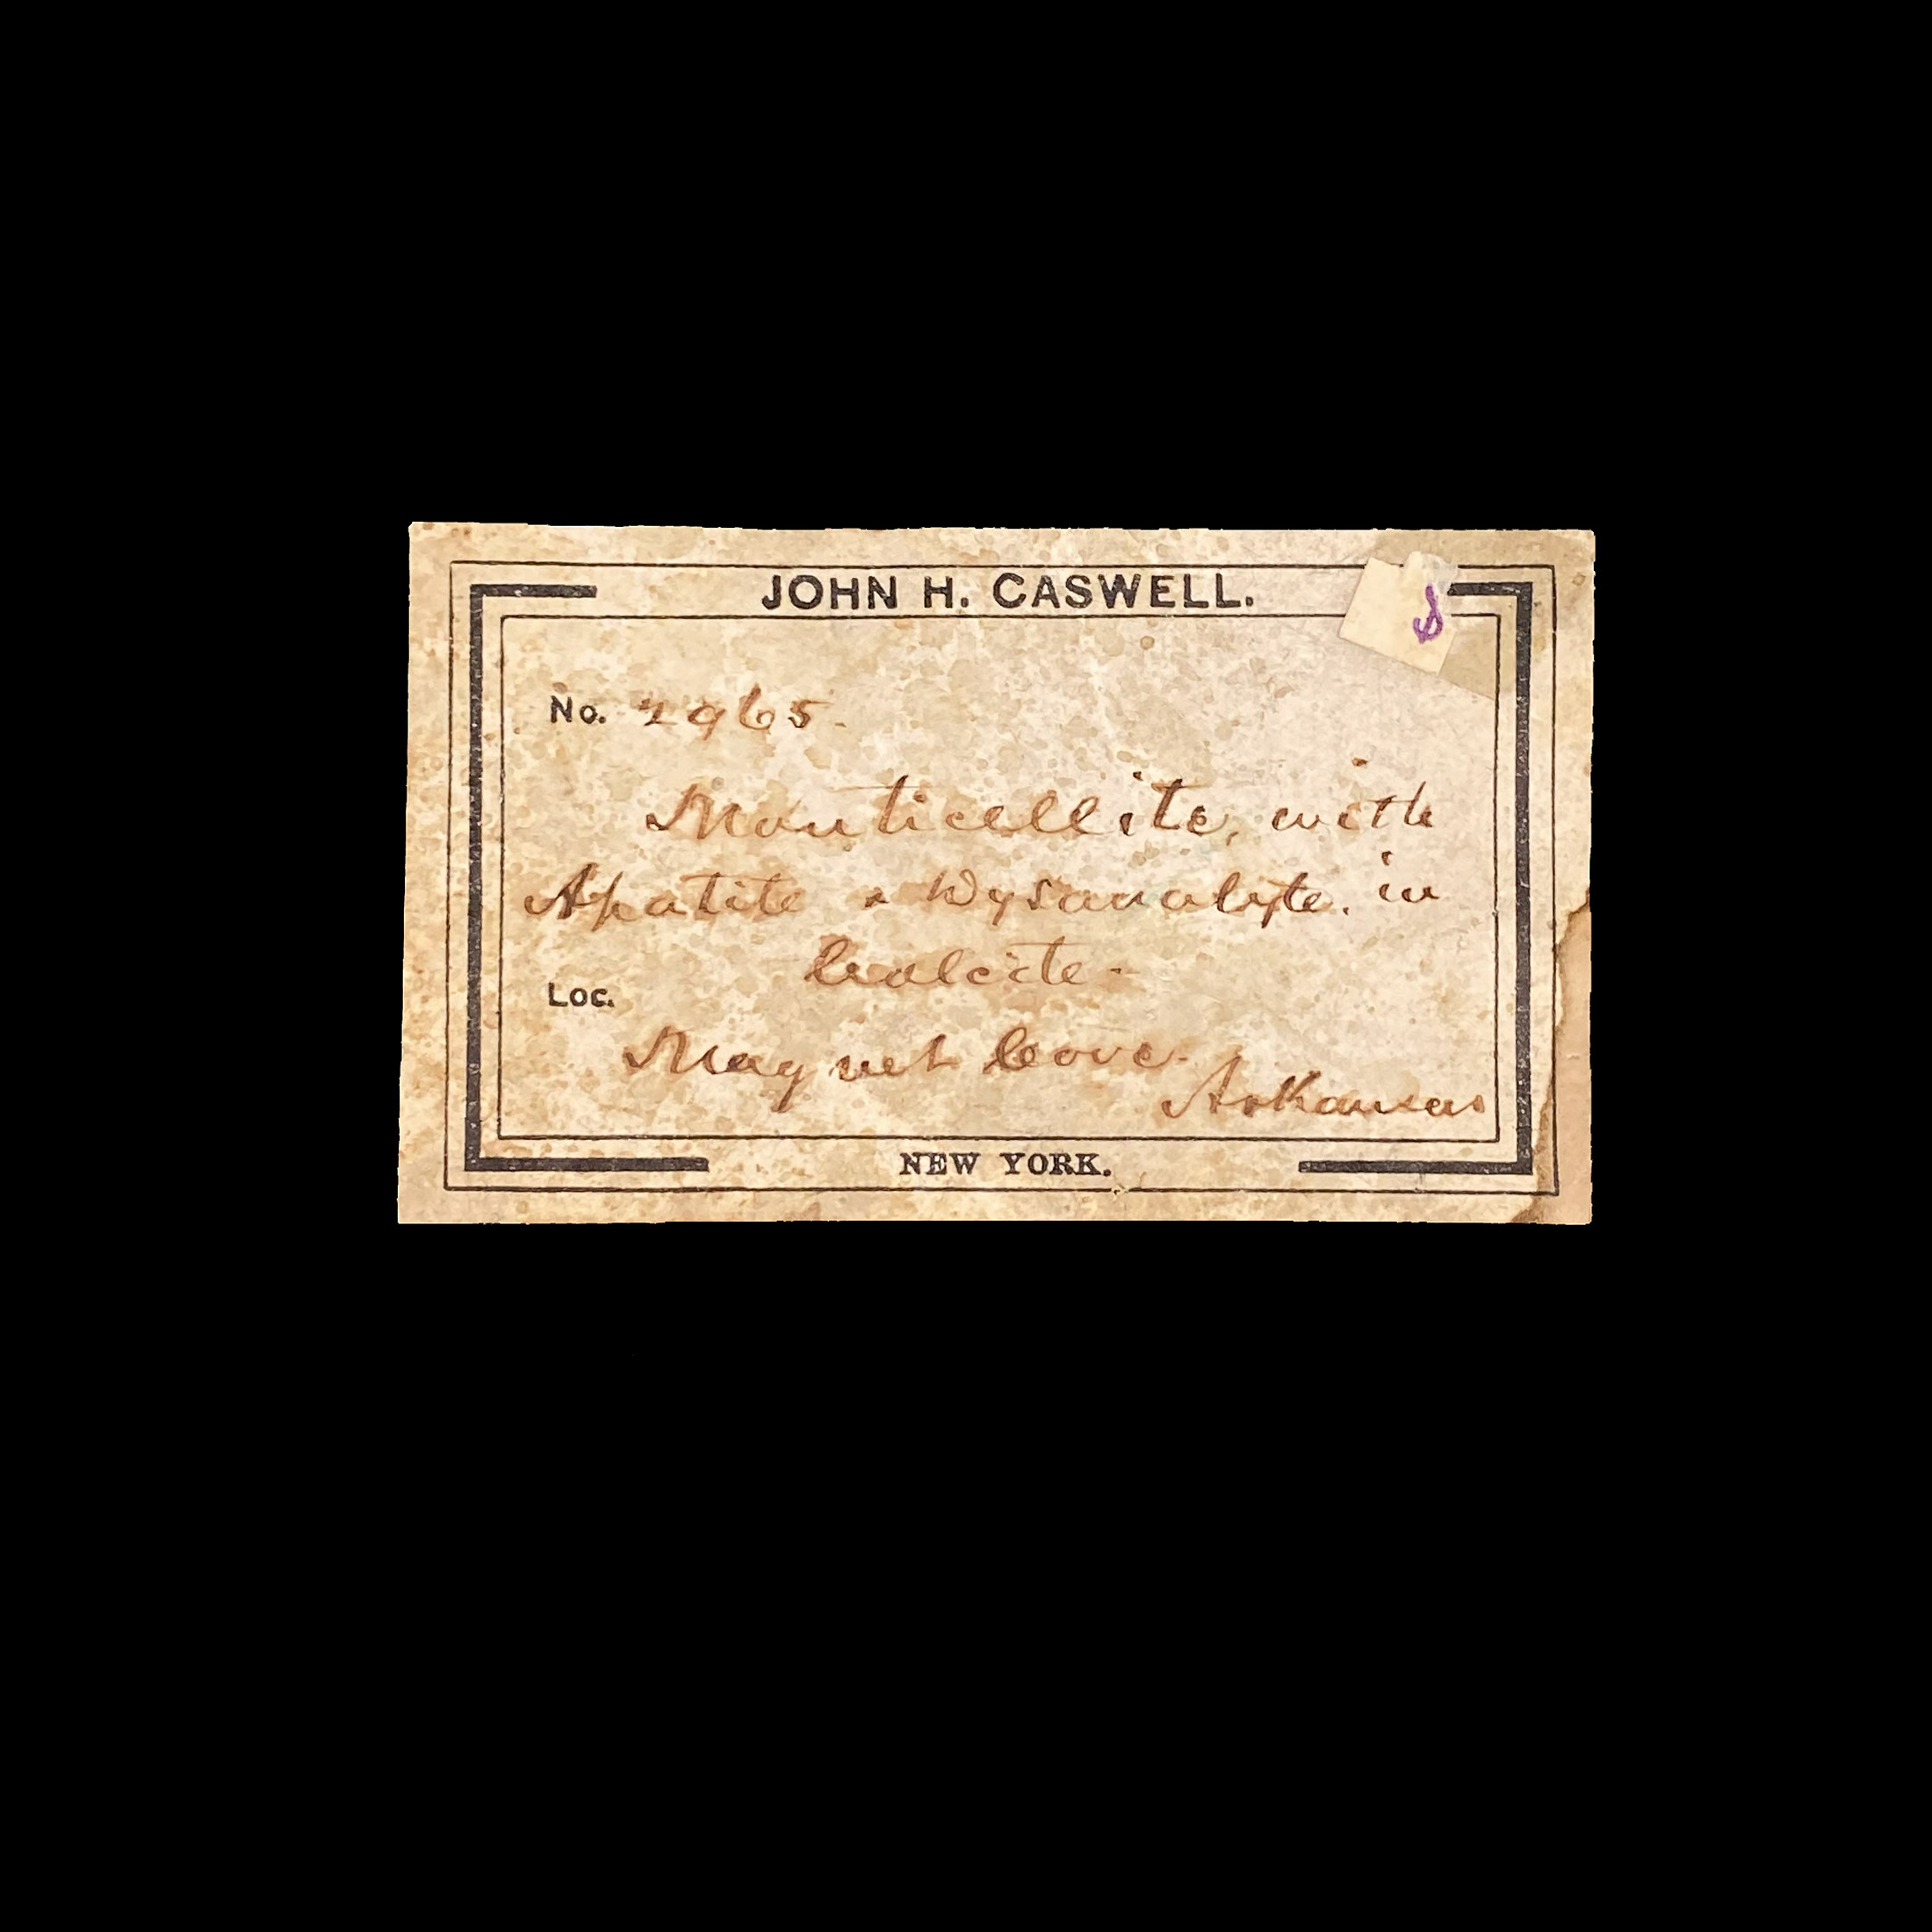 JOHN H. CASWELL.
No. 2965.
Monticellite, with
Apatite & Dysanalyte. in
Calcite -
Loc.
Magnet Cove.
Arkansas
NEW YORK.